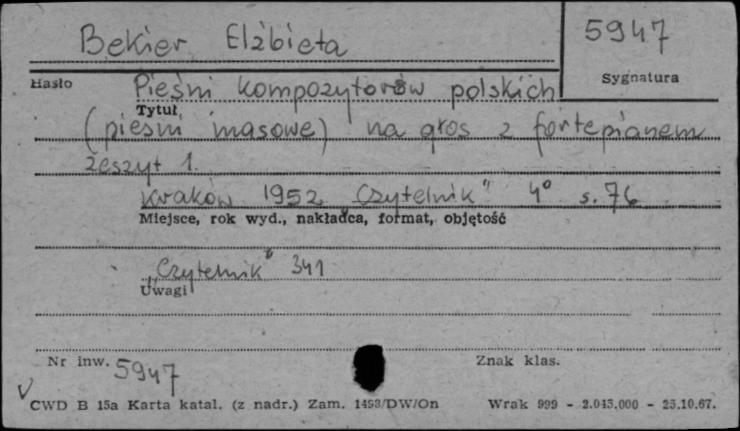 Bekier Elżbieta
5947
Hasło
Sygnatura
Pieśni kompozytorów polskich
Tytuł
(pieśni masowe) na głos z fortepianem
zeszyt 1.
Kraków 1952 Czytelnik" 4° s. 76
Miejsce, rok wyd., nakładca, format, objętość
„Czytelnik" 341
Uwagi
Nr inw. 5947
Znak klas.
CWD B 15a Karta katal. (z nadr.) Zam. 1493/DW/On
Wrak 999 - 2.045.000 - 25.10.67.